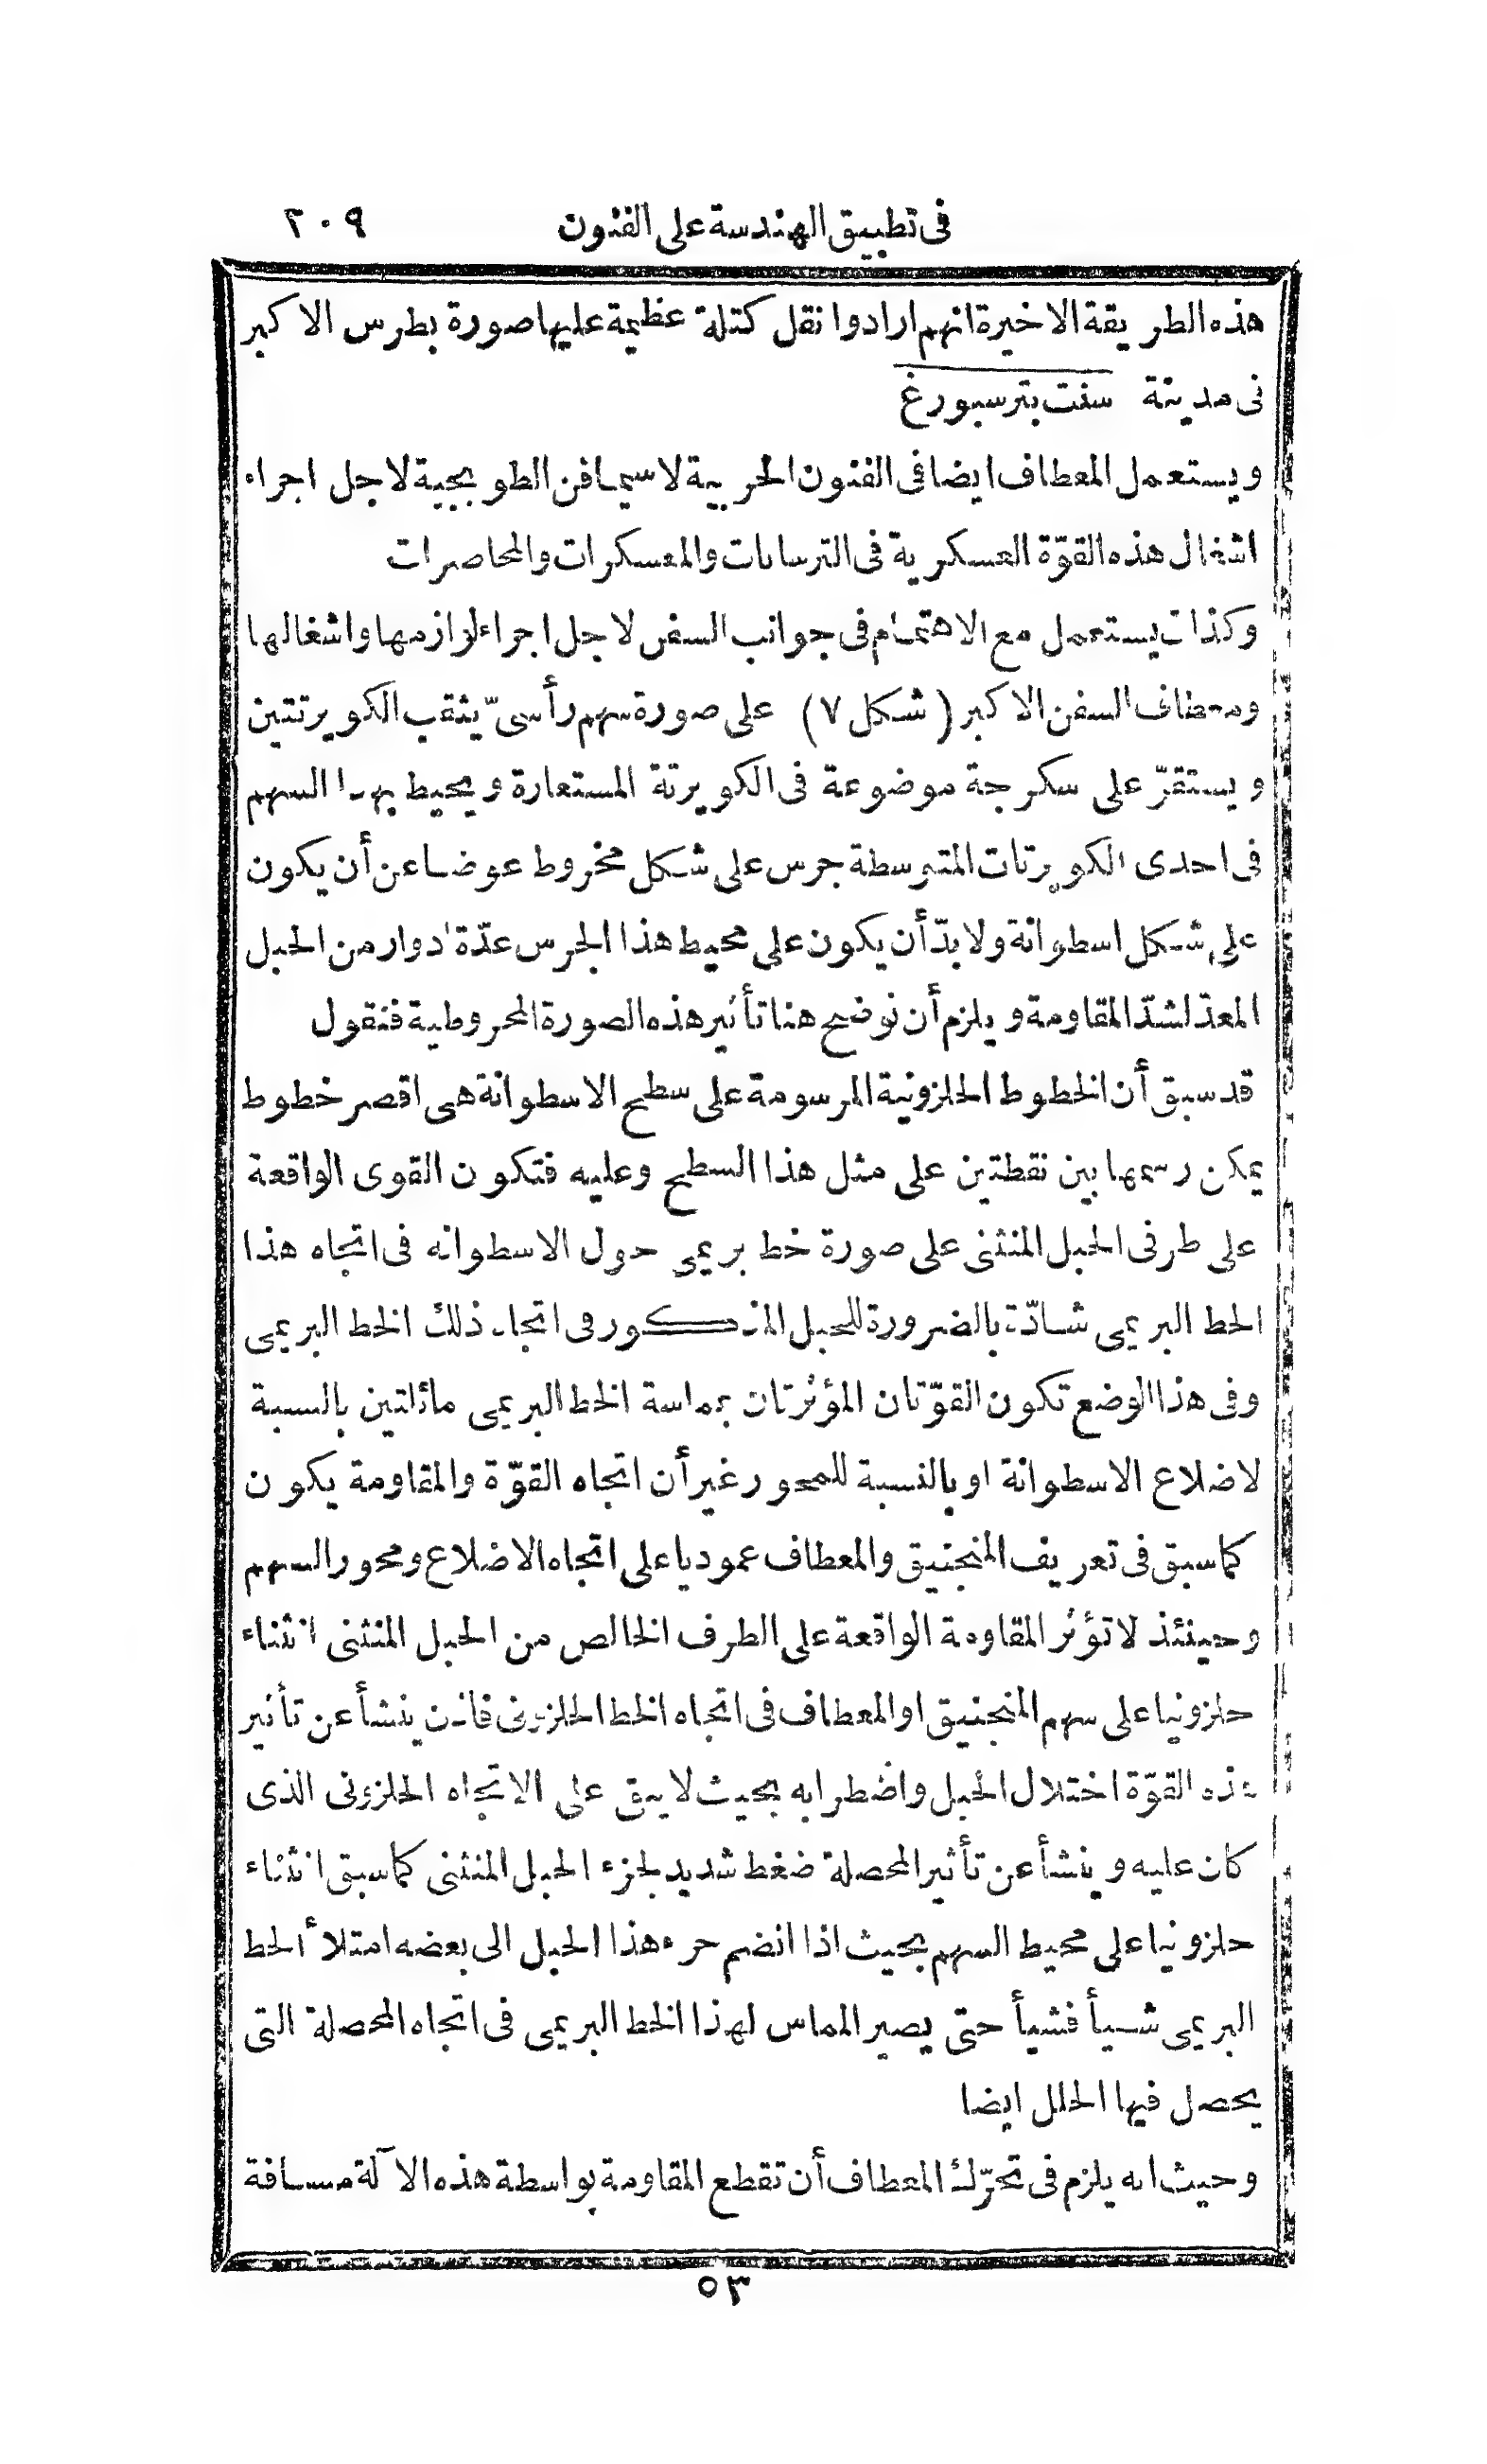 فى تطبيق الهندسة على الفنون ٢٠٩
هذه الطريقة الاخيرة انهم ارادوا نقل كتلة عظيمة عليها صورة بطرس الاكبر
فى مدينة سنت بترسبورغ
ويستعمل المعطاف ايضا فى الفنون الحربية لاسيما فن الطوبجية لاجل اجراء
اشغال هذه القوّة العسكرية فى الترسانات والمعسكرات والمحاصرات
وكذا يستعمل مع الاهتمام فى جوانب السفن لاجل اجراء لوازمها واشغالها
ومعطاف السفن الاكبر (شكل ٧) على صورة سهم رأسىّ يثقب الكويرتتين
ويستقرّ على سكرجة موضوعة فى الكويرتة المستعارة ويحيط بهذا السهم
فى احدى الكويرتات المتوسطة جرس على شكل مخروط عوضا عن أن يكون
على شكل اسطوانة ولابدّ أن يكون على محيط هذا الجرس عدّة ادوار من الحبل
المعدّ لشدّ المقاومة ويلزم أن نوضح هنا تأثير هذه الصورة المخروطية فنقول
قد سبق أن الخطوط الحلزونية المرسومة على سطح الاسطوانة هى اقصر خطوط
يمكن رسمها بين نقطتين على مثل هذا السطح وعليه فتكون القوى الواقعة
على طرفى الحبل المنثنى على صورة خط بريمى حول الاسطوانه فى اتجاه هذا
الخط البريمى شادّة بالضرورة للحبل المذكور فى اتجاه ذلك الخط البريمى
وفى هذا الوضع تكون القوّتان المؤثرتان بمماسة الخط البريمى مائلتين بالنسبة
لاضلاع الاسطوانة او بالنسبة للمحور غير أن اتجاه القوّة والمقاومة يكون
كما سبق فى تعريف المنجنيق والمعطاف عموديا على اتجاه الاضلاع ومحور السهم
وحينئذ لا تؤثر المقاومة الواقعة على الطرف الخالص من الحبل المنثنى انثناء
حلزونيا على سهم المنجنيق او المعطاف فى اتجاه الخط الحلزونى فاذن ينشأ عن تأثير
هذه القوّة اختلال الحبل واضطرابه بحيث لا يبقى على الاتجاه الحلزونى الذى
كان عليه وينشأ عن تأثير المحصلة ضغط شديد لجزء الحبل المنثنى كما سبق انثناء
حلزونيا على محيط السهم بحيث اذا انضم جزء هذا الحبل الى بعضه امتلأ الخط
البريمى شيأ فشيأ حتى يصير المماس لهذا الخط البريمى فى اتجاه المحصلة التى
يحصل فيها الخلل ايضا
وحيث انه يلزم فى تحرّك المعطاف أن تقطع المقاومة بواسطة هذه الآلة مسافة
٥٣